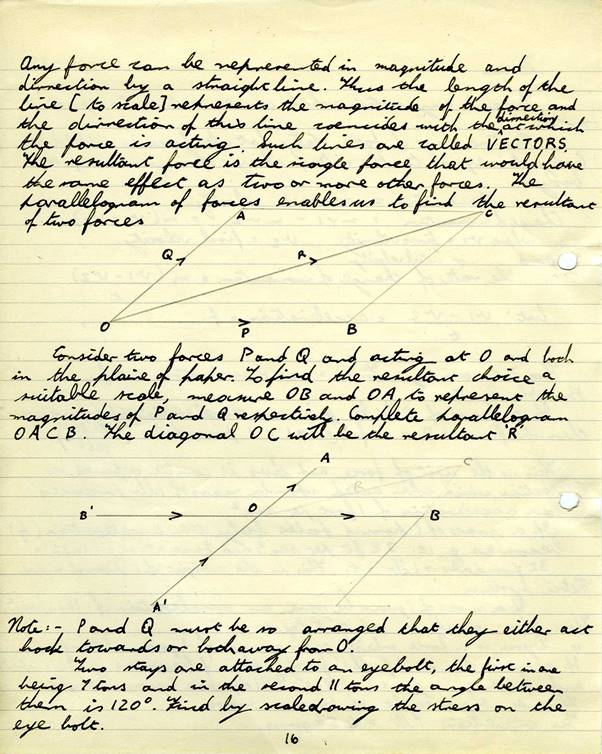 Any force can be represented in magnitude and
dirrection by a straight line. Thus the length of the
line [to scale] represents the magnitude of the force and
the dirrection of this line coincides with the dirrection at which
the force is acting. Such lines are called VECTORS.
The resultant force is the single force that would have
the same effect as two or more other forces. The
parallelogram of forces enables us to find the resultant
of two forces
A C
Q R
O P B
Consider two forces P and Q and acting at O and both
in the plaine of paper. To find the resultant choice a
suitable scale, measure OB and OA, to represent the
magnitudes of P and Q respectively. Complete parallelogram
OACB. The diagonal OC will be the resultant 'R'
A
R C
B' O B
A'
Note:- P and Q must be so arranged that they either act
both towards or both away from O.
Two stays are attached to an eyebolt, the first in are
being 7 tons and in the second 11 tons the angle between
them is 120°. Find by scaledrowing the stress on the
eye bolt.
16